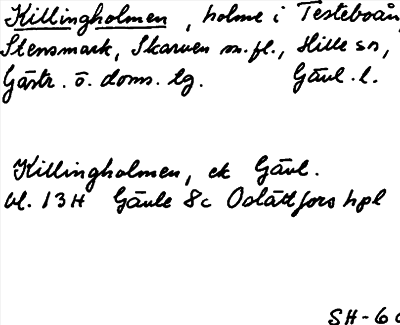 Killingholmen, holme i Testeboån,
Stensmark, Skarven m.fl., Hille sn,
Gästr. ö. doms. tg. Gävl. l.
Killingholmen, ek Gävl.
bl. 13H Gävle 8c Oslättfors hpl
SH-60